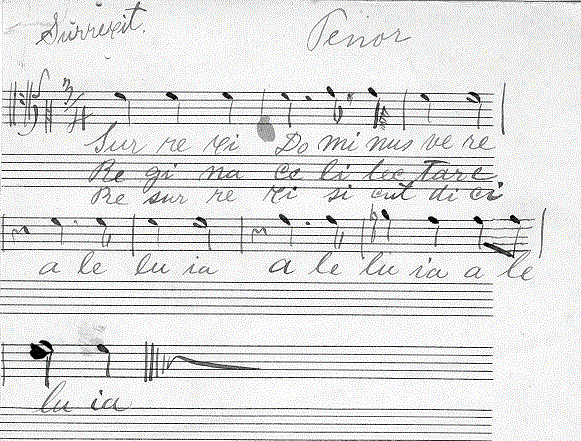 Surrexit. Tenor
3/4
Sur re xi Do mi nus ve re
Re gi na ce li lec tare
Re sur re xi si cut di ci
a le lu ia a le lu ia a le
lu ia